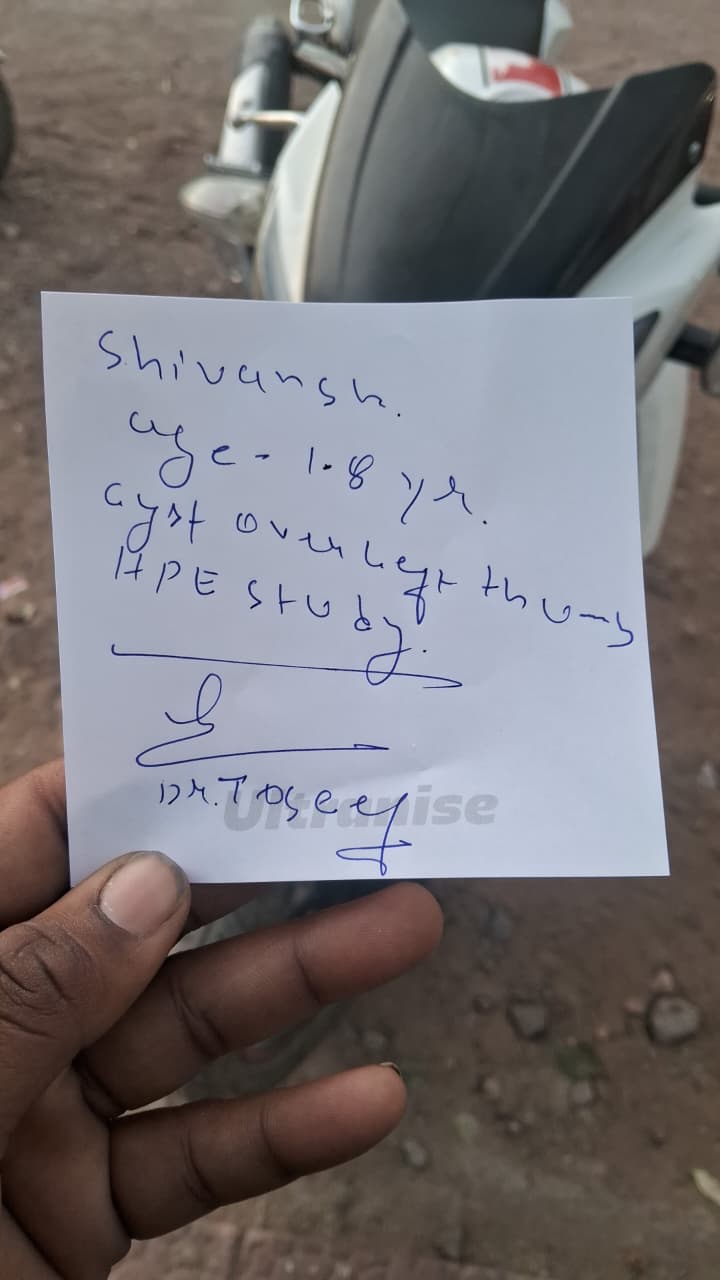 Shivansh.
age - 1.8 yr.
cyst over left thumb
HPE study.
Dr. Toseef
Ultranise